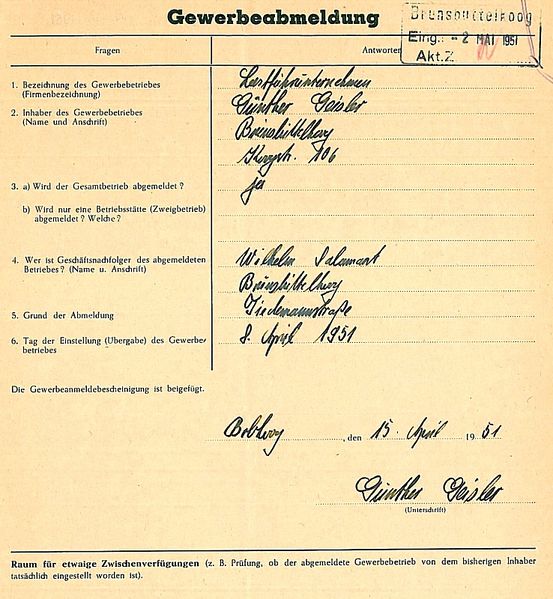 Gewerbeabmeldung
Brunsbüttelkoog
Eing.: - 2 MAI 1951
Akt.Z.
Fragen
Antworten
1. Bezeichnung des Gewerbebetriebes
(Firmenbezeichnung)
2. Inhaber des Gewerbebetriebes
Günther Geisler
(Name und Anschrift)
Brunsbüttelkoog
106
3. a) Wird der Gesamtbetrieb abgemeldet?
ja
b) Wird nur eine Betriebsstätte (Zweigbetrieb)
abgemeldet? Welche?
4. Wer ist Geschäftsnachfolger des abgemeldeten
Wilhelm
Betriebes? (Name u. Anschrift)
Brunsbüttelkoog
Tiedemannstraße
5. Grund der Abmeldung
6. Tag der Einstellung (Übergabe) des Gewerbe-
betriebes
8. April 1951
Die Gewerbeanmeldebescheinigung ist beigefügt.
, den 15. April 1951
Günther Geisler
(Unterschrift)
Raum für etwaige Zwischenverfügungen (z. B. Prüfung, ob der abgemeldete Gewerbebetrieb von dem bisherigen Inhaber
tatsächlich eingestellt worden ist).